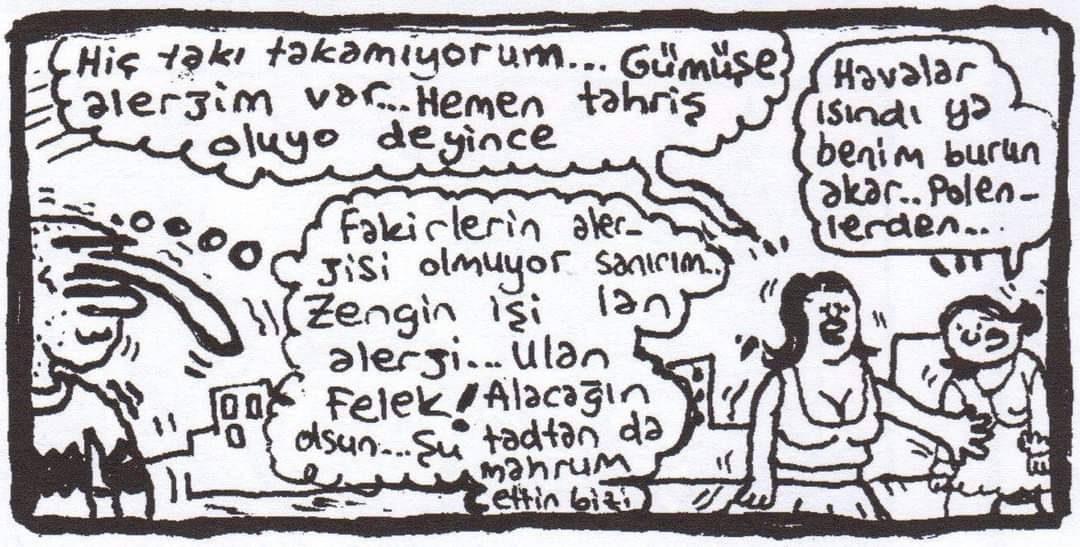 Hiç takı takamıyorum... Gümüşe
alerjim var... Hemen tahriş
oluyo deyince
Havalar
ısındı ya
benim burun
akar.. Polen-
lerden...
Fakirlerin aler-
jisi olmuyor sanırım..
Zengin işi lan
alerji... Ulan
Felek! Alacağın
olsun... Şu tadtan da
mahrum
ettin bizi